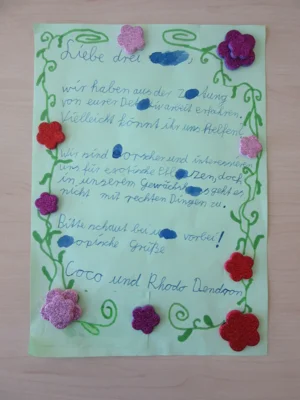 Liebe drei
wir haben aus der Z tung
von eurer Det ivarbeit erfahren.
Vielleicht könnt ihr uns helfen!
wir sind orscher und interessieren
uns für exotische Ech zen, doch
in unserem Gewächs s geht es
nicht mit rechten Dingen zu.
Bitte schaut bei u vorbei!
opische Grüße
Coco und Rhodo Dendron